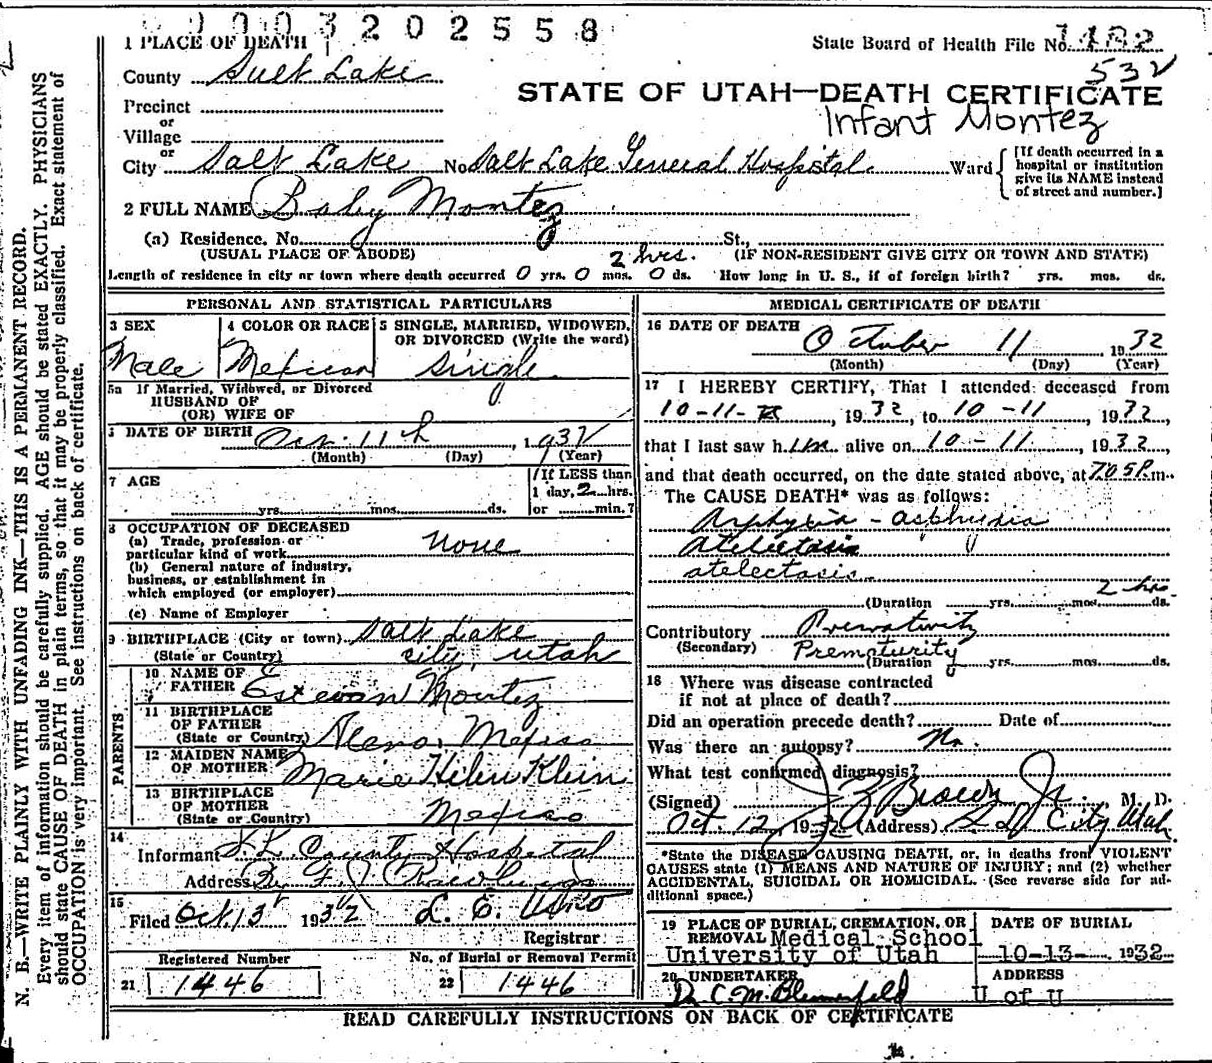 0003202558
1 PLACE OF DEATH
State Board of Health File No. 1482
County Salt Lake
532
Precinct
STATE OF UTAH—DEATH CERTIFICATE
or
Village
Infant Montez
or
City Salt Lake No. Salt Lake General Hospital Ward
[If death occurred in a
hospital or institution
give its NAME instead
of street and number.]
2 FULL NAME Baby Montez
(a) Residence. No. St.,
(USUAL PLACE OF ABODE) 2 hrs. (IF NON-RESIDENT GIVE CITY OR TOWN AND STATE)
Length of residence in city or town where death occurred 0 yrs. 0 mos. 0 ds. How long in U. S., if of foreign birth? yrs. mos. ds.
PERSONAL AND STATISTICAL PARTICULARS
3 SEX
Male
4 COLOR OR RACE
Mexican
5 SINGLE, MARRIED, WIDOWED,
OR DIVORCED (Write the word)
Single
5a If Married, Widowed, or Divorced
HUSBAND OF
(OR) WIFE OF
DATE OF BIRTH Oct. 11th, 1932
(Month) (Day) (Year)
7 AGE
If LESS than
1 day, 2 hrs.
yrs. mos. ds. or min.?
8 OCCUPATION OF DECEASED
(a) Trade, profession or
particular kind of work none
(b) General nature of industry,
business, or establishment in
which employed (or employer)
(c) Name of Employer
9 BIRTHPLACE (City or town) Salt Lake
(State or Country) City, Utah
PARENTS
10 NAME OF
FATHER Estevan Montez
11 BIRTHPLACE
OF FATHER
(State or Country) Mexico
12 MAIDEN NAME
OF MOTHER Marie Helen Klein
13 BIRTHPLACE
OF MOTHER
(State or Country) Mexico
14
Informant S. L. County Hospital
Address By F. J. Rawlings
15
Filed Oct 13 1932 L. E.
Registrar
Registered Number No. of Burial or Removal Permit
21 1446 22 1446
MEDICAL CERTIFICATE OF DEATH
16 DATE OF DEATH
October 11 1932
(Month) (Day) (Year)
17 I HEREBY CERTIFY, That I attended deceased from
10-11- , 1932, to 10-11 , 1932,
that I last saw him alive on 10-11 , 1932,
and that death occurred, on the date stated above, at 705P.m.
The CAUSE DEATH* was as follows:
Asphyxia - asphyxia
Atelectasis
atelectasis
2 hrs
(Duration yrs. mos. ds.
Contributory Prematurity
(Secondary) Prematurity
(Duration yrs. mos. ds.
18 Where was disease contracted
if not at place of death?
Did an operation precede death? Date of
Was there an autopsy? No.
What test confirmed diagnosis?
(Signed) J Z Brown Jr. M. D.
Oct. 12, 1932 (Address) S. L. City Utah
*State the DISEASE CAUSING DEATH, or, in deaths from VIOLENT
CAUSES state (1) MEANS AND NATURE OF INJURY; and (2) whether
ACCIDENTAL, SUICIDAL OR HOMICIDAL. (See reverse side for ad-
ditional space.)
19 PLACE OF BURIAL, CREMATION, OR
REMOVAL Medical School
University of Utah
DATE OF BURIAL
10-13- 1932
20 UNDERTAKER
Dr C. M. Blumenfeld
ADDRESS
U of U
READ CAREFULLY INSTRUCTIONS ON BACK OF CERTIFICATE
N. B.—WRITE PLAINLY WITH UNFADING INK—THIS IS A PERMANENT RECORD.
Every item of information should be carefully supplied. AGE should be stated EXACTLY. PHYSICIANS
should state CAUSE OF DEATH in plain terms, so that it may be properly classified. Exact statement of
OCCUPATION is very important. See instructions on back of certificate.